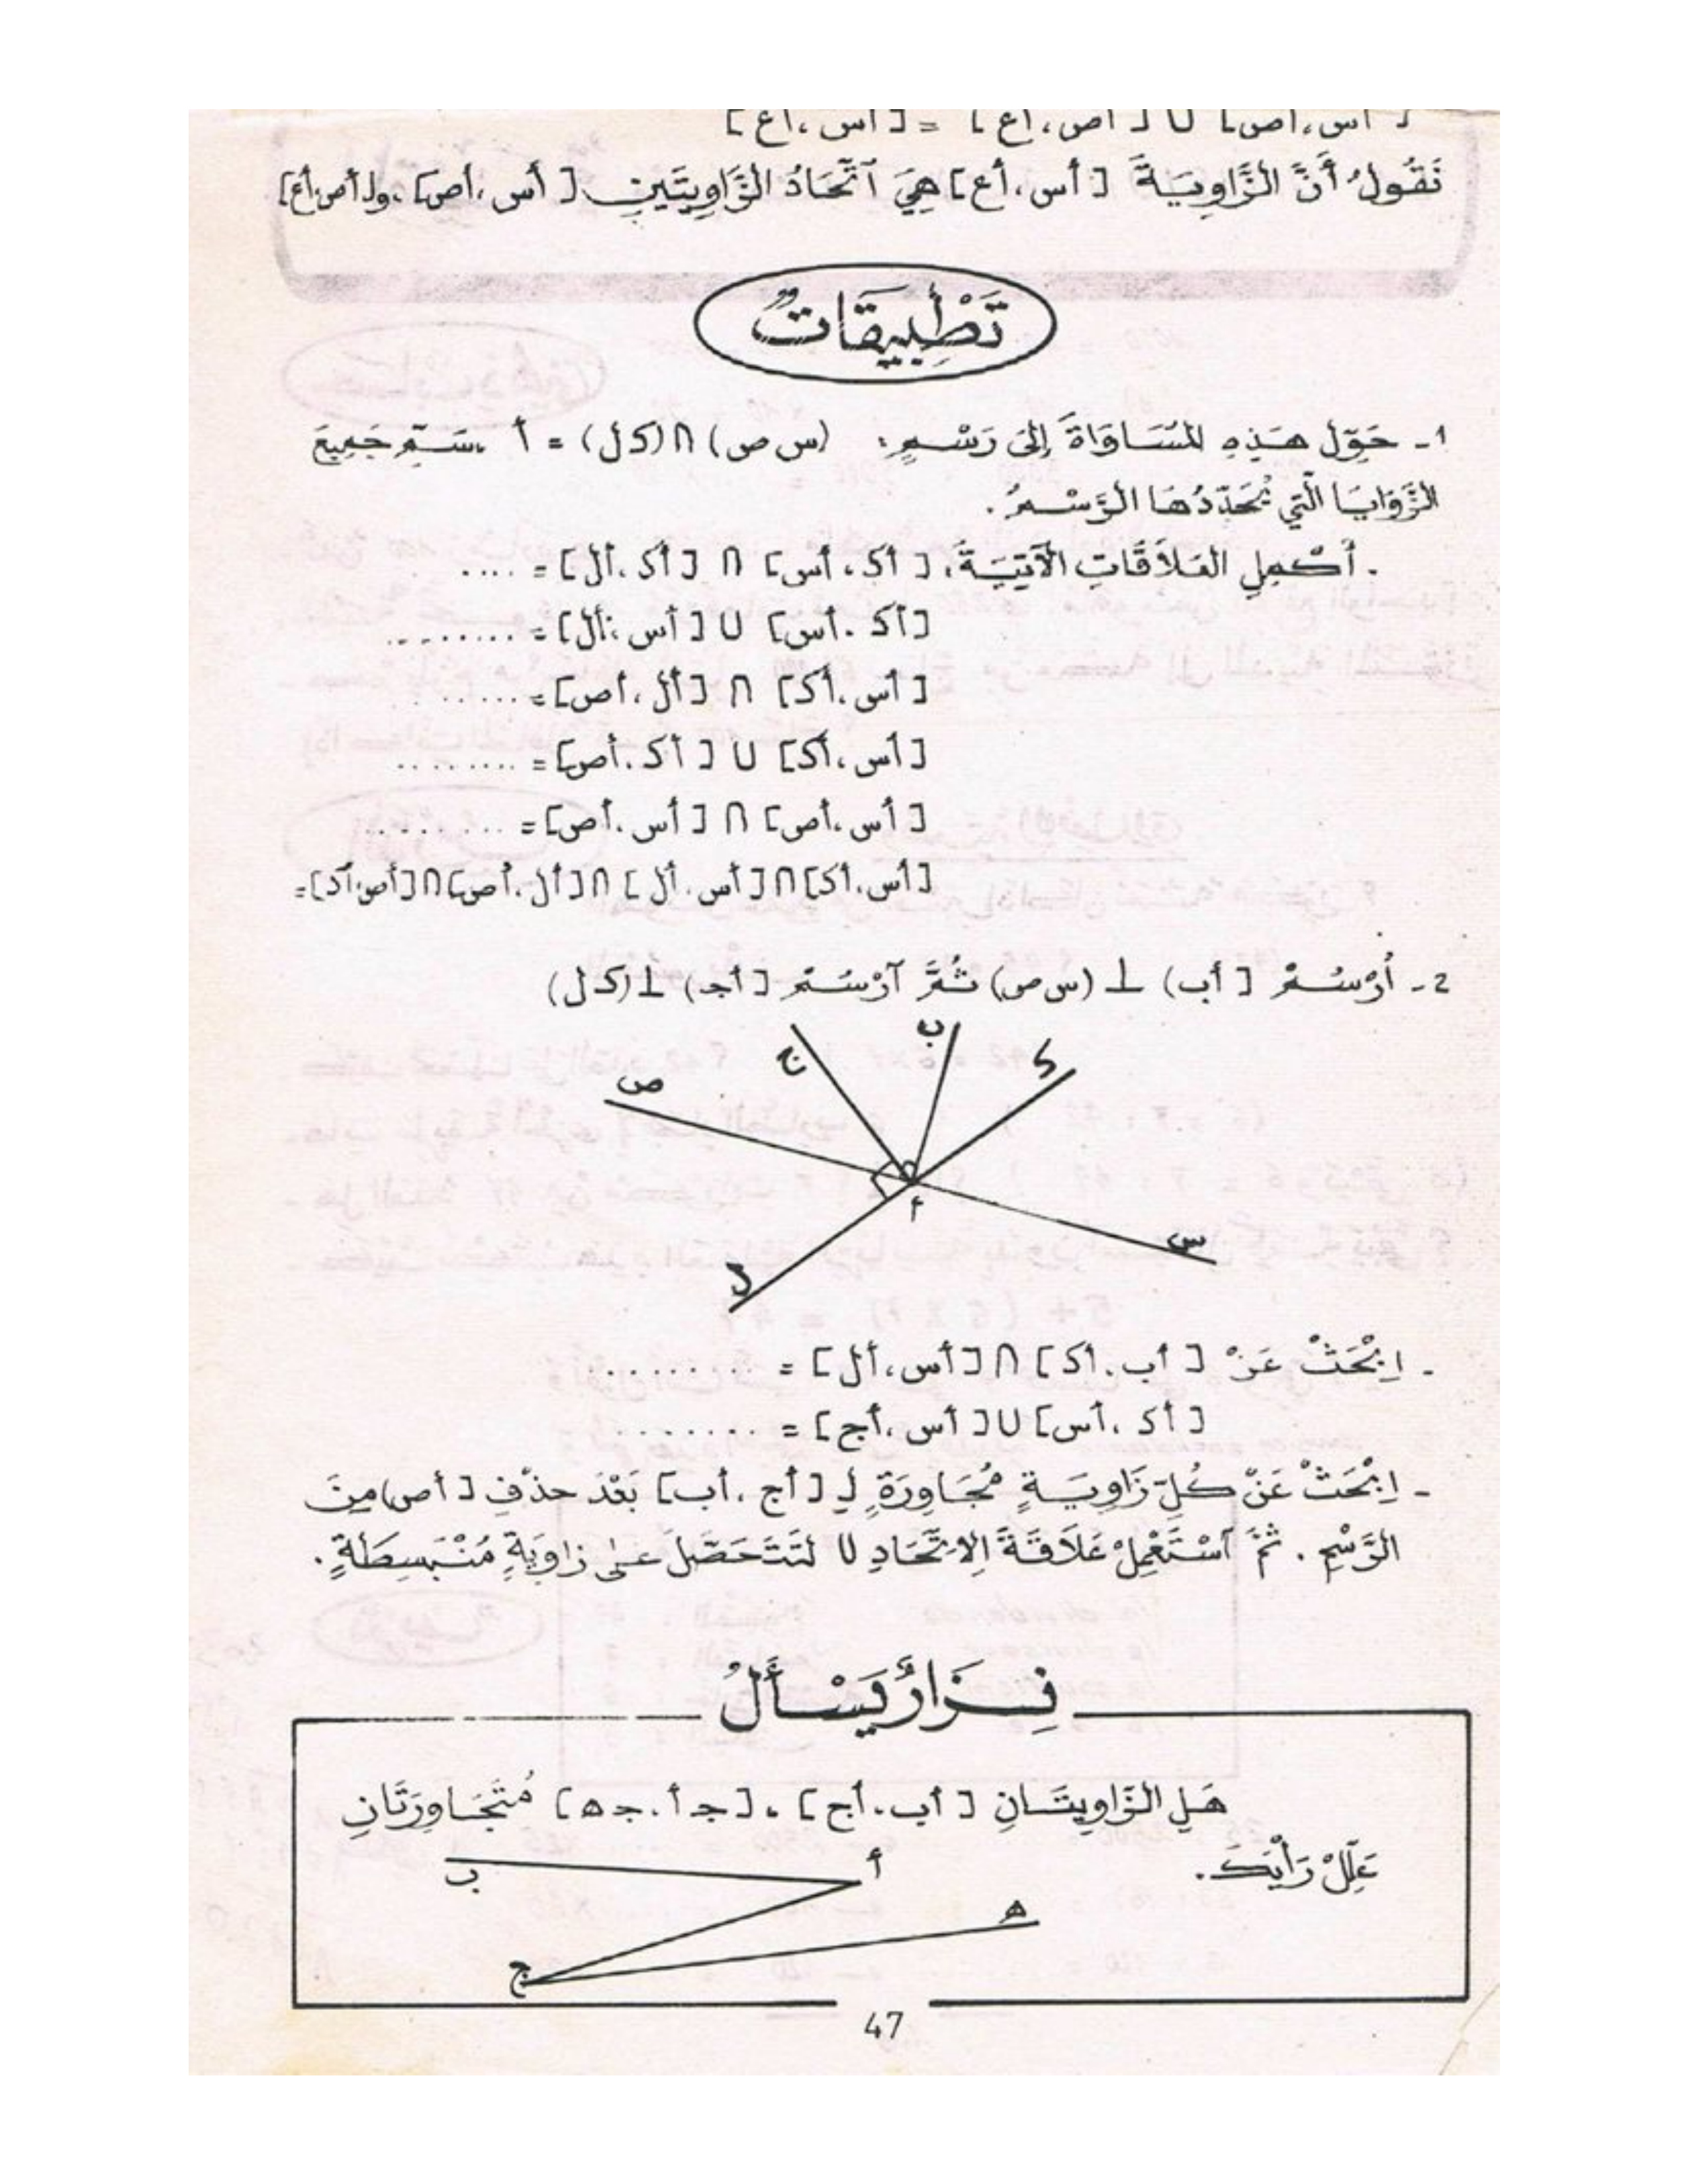 [أس،أص] ∪ [أص،أع] = [أس،أع]
نَقُولُ أَنَّ الزَّاوِيَةَ [أس،أع] هِيَ آتِّحَادُ الزَّاوِيَتَيْنِ [أس،أص]، و[أص،أع]
تَطْبِيقَاتٌ
1- حَوِّل هَذِهِ المُسَاوَاةَ إِلَى رَسْمٍ: (س ص) ∩ (ك ل) = أ . سَمِّ جَمِيعَ
الزَّوَايَا الَّتِي يُحَدِّدُهَا الرَّسْمُ .
. أَكْمِلِ العَلاَقَاتِ الآتِيَةَ: [أك، أس] ∩ [أك،أل] = ....
[أك.أس] ∪ [أس،أل] = ........
[أس،أك] ∩ [أل،أص] = ......
[أس،أك] ∪ [أك،أص] = ........
[أس،أص] ∩ [أس،أص] = ........
[أس،أك] ∩ [أس،أل] ∩ [أل،أص] ∩ [أص،أك] =
2- أُرْسُمْ [أب) ⊥ (س ص) ثُمَّ آرْسُمْ [أجـ) ⊥ (ك ل)
ب
ج
ك
ص
أ
س
ل
- اِبْحَثْ عَنْ [أب.أك] ∩ [أس،أل] = .........
[أك،أس] ∪ [أس،أج] = ........
- اِبْحَثْ عَنْ كُلِّ زَاوِيَةٍ مُجَاوِرَةٍ لِـ [أج،أب] بَعْدَ حذْفِ [أص) مِنَ
الرَّسْمِ . ثُمَّ آسْتَعْمِلْ عَلاَقَةَ الاِتِّحَادِ ∪ لتَتَحَصَّلَ على زاوِيَةٍ مُنْبَسِطَةٍ .
نِزَارٌ يَسْأَلُ
هَلِ الزَّاوِيتَانِ [أب،أج] ، [جـ أ.جـ هـ] مُتَجَاوِرَتَانِ
عَلِّلْ رَأْيَكَ .
أ
ب
هـ
ج
47